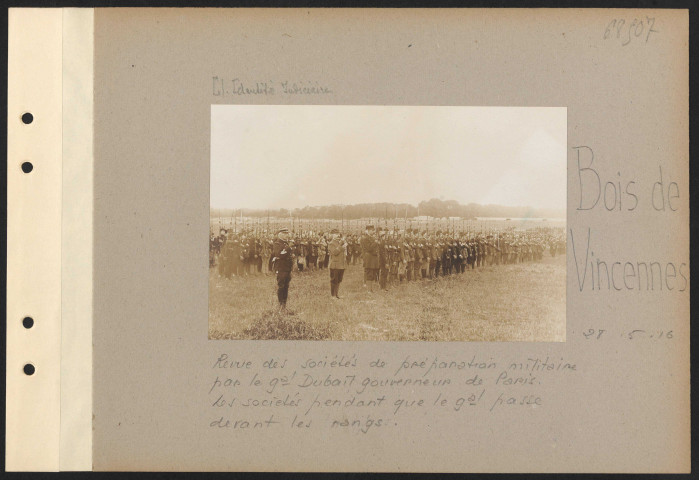 68507
Cl. Identité Judiciaire
Bois de
Vincennes
28 . 5 . 16
Revue des sociétés de préparation militaire
par le gal Dubail gouverneur de Paris.
Les sociétés pendant que le gal passe
devant les rangs.